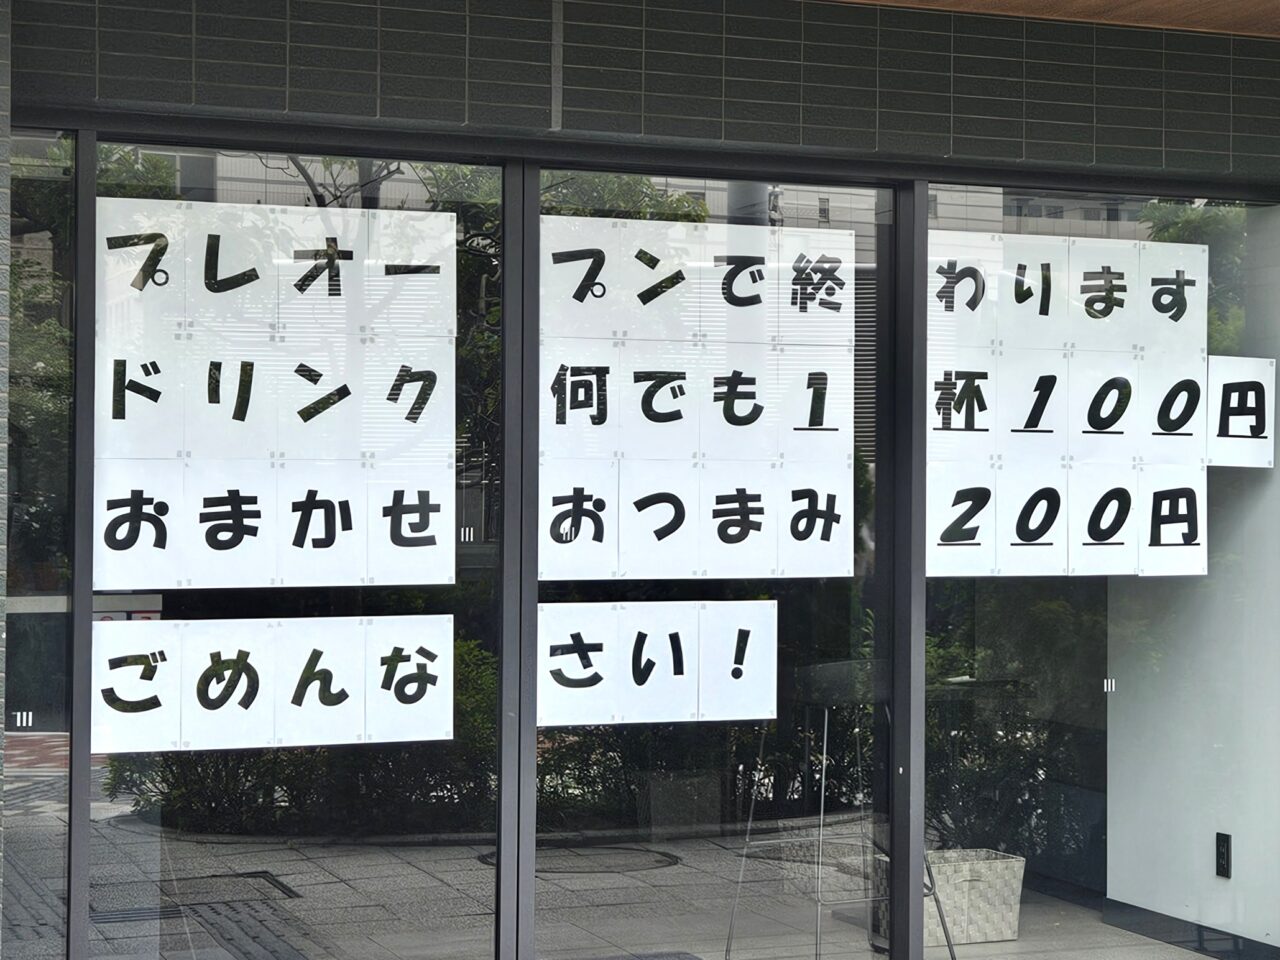 プレオープンで終わります
ドリンク何でも1杯100円
おまかせおつまみ200円
ごめんなさい！